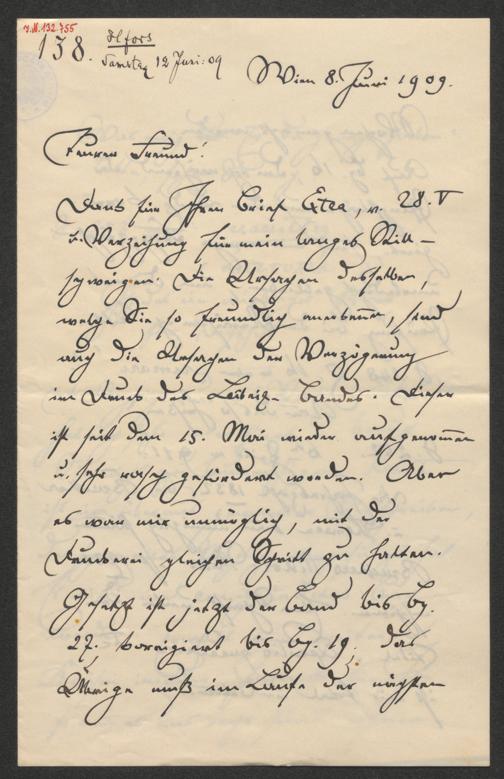 I.N. 132.755
138.
Hlfors
Samstag 12 Juni: 09
Wien 8. Juni 1909.
Teurer Freund!
Dank für Ihren Brief Etea, v. 28. V
u. Verzeihung für mein langes Still-
schweigen. Die Ursachen desselben,
welche Sie so freundlich anerkennen, sind
auch die Ursachen der Verzögerung
im Druck des Leibniz-Bandes. Dieser
ist seit dem 15. Mai wieder aufgenommen
u. sehr rasch gefördert worden. Aber
es war mir unmöglich, mit der
Druckerei gleichen Schritt zu halten.
Gesetzt ist jetzt der Band bis Bg.
27. korrigiert bis Bg. 19; das
Übrige muß im Laufe der nächsten